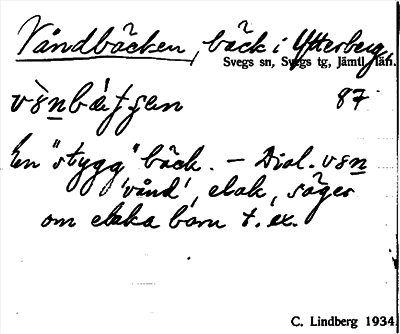 Våndbäcken, bäck i Ytterberg,
Svegs sn, Svegs tg, Jämtl. län.
87
En "stygg" bäck. – Dial. vȣn
'vånd', elak, säges
om elaka barn t. ex.
C. Lindberg 1934